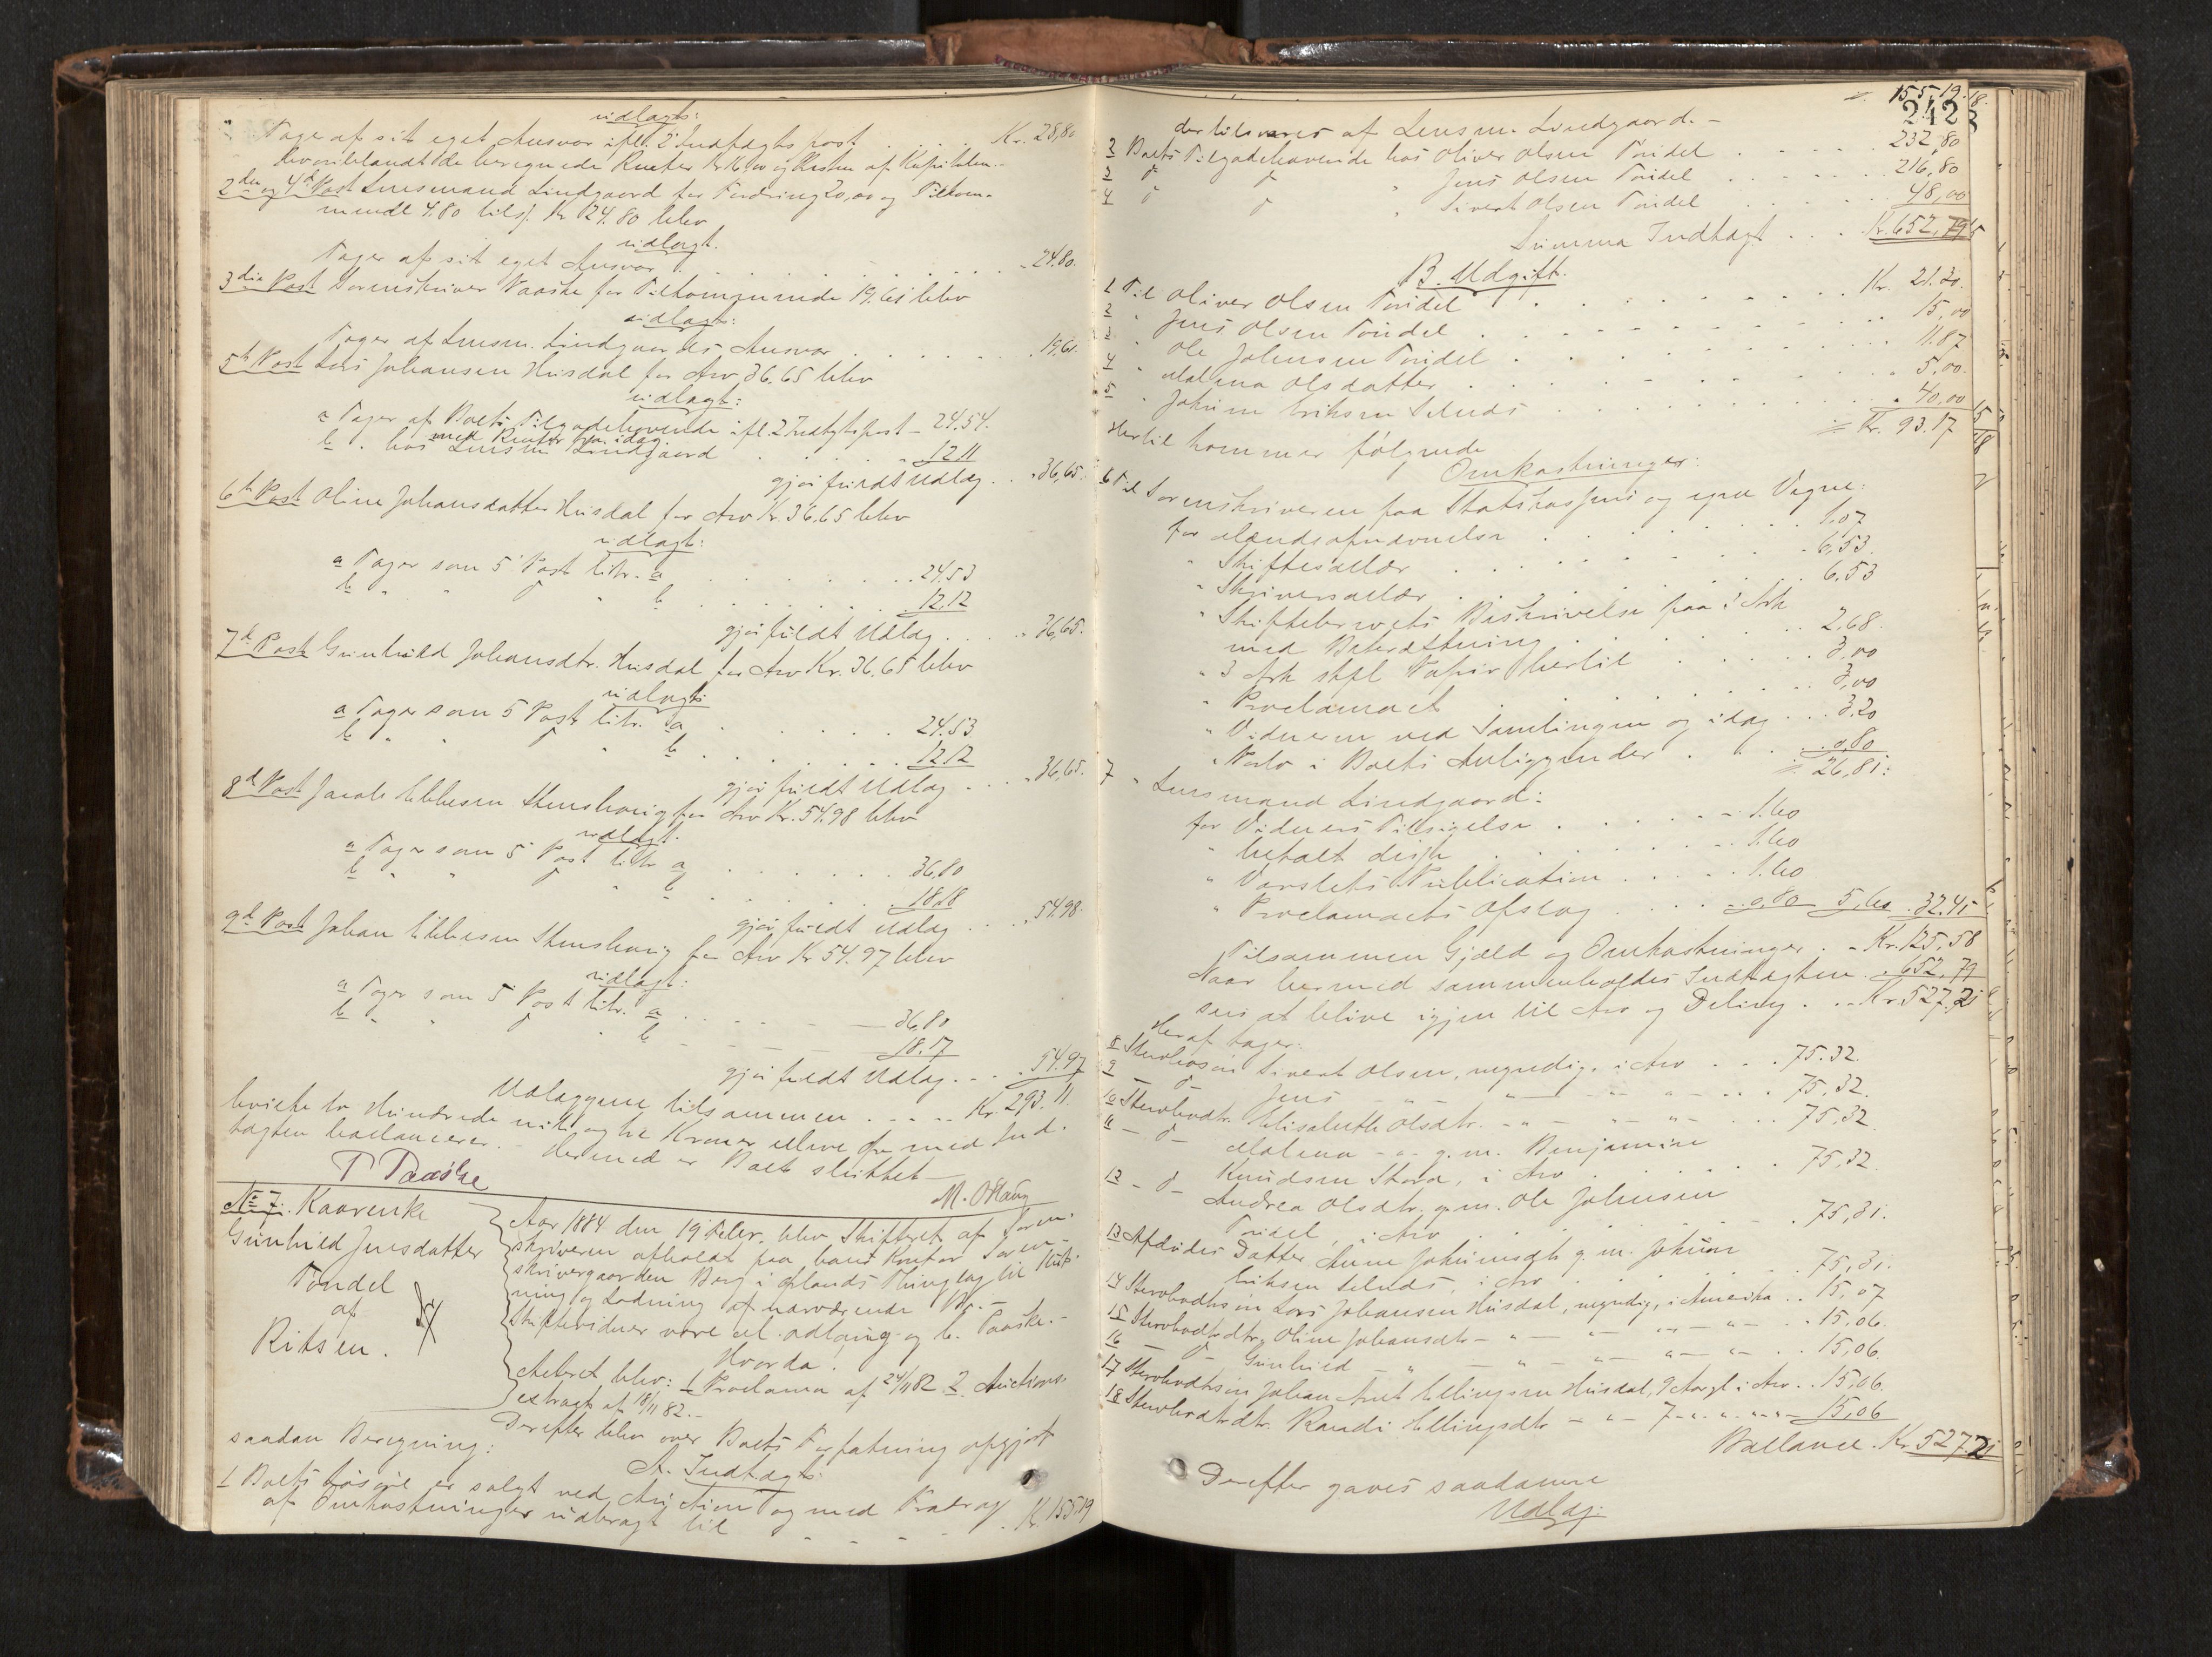 udlagt:
Tager af sit eget Ansvar ifl. 2 Indtægtspost . . . . Kr. 28,80
hvoriblandt de beregnede Renter Kr. 16,00 og Resten af Kapitalen.-
2den og 4de Post Lensmand Lindgaard for Fordring 20,00 og Tilkom-
mende 4.80 tils. Kr. 24.80 blev
udlagt.
Tager af sit eget Ansvar . . . . . . . . . 24.80.
3die Post Sorenskriver Paaske for Tilkommende 19.61 blev
udlagt:
Tager af Lensm. Lindgaards Ansvar . . . . . . 19,61.
5te Post Lars Johansen Husdal for Arv 36,65 blev
udlagt:
a Tager af Boets Tilgodehavende ifl. 2 Indtgtspost - 24.54.
med Renter fra idag
b " hos Lensm. Lindgaard . . . . . 12.11
gjør fuldt Udlæg . . 36,65.
6te Post Oline Johansdatter Husdal for Arv Kr. 36,65 blev
udlagt:
a Tager som 5 Post litr. a . . . . . . 24.53
b " " d " b . . . . . . 12,12
gjør fuldt Udlæg . . . . 36,65.
7de Post Gunhild Johansdtr. Husdal for Arv Kr. 36.65 blev
udlagt:
a Tager som 5 Post litr. a . . . . . . 24.53
b " " d " b . . . . . . 12.12
gjør fuldt Udlæg . . . 36,65.
8de Post Jacob Ellessen Stenshaug for Arv Kr. 54.98 blev
udlagt.
a Tager som 5 Post litr a . . . . . . 36,80
b " " d " b . . . . . . 18.18
gjør fuldt Udlæg . . . 54.98.
9de Post Johan Ellessen Stenshaug for Arv Kr 54.97 blev
udlagt:
a Tager som 5 Post litr. a . . . - - 36,80
b " " d " b - - - - 18.17
gjør fuldt Udlæg . . . . 54.97
Udlæggene tilsammen . . . . Kr. 293.11.
hvilke to Hundrede niti og tre Kroner elleve Øre med Ind-
tægten ballancerer. - Hermed er Boet sluttet -
P Paaske
M. O. Haug
No 7. Kaarenke
Gunhild Jensdatter
Tøndel
af
Ritsen.
Aar 1884 den 19 Febr. blev Skifteret af Soren-
skriveren afholdt paa hans Kontor Soren-
skrivergaarden Berg i Ørlands Thinglag til Slut-
ning og Lodning af nærværende Bo. -
Skiftevidner vare
Hvorda:
Acteret blev: 1 Proclama af 24/11 82 2. Auctions-
extract af 18/11 82. -
Derefter blev over Boets Forfatning opgjort
saadan Beregning:
A. Indtægt:
1 Boets Løsøre er solgt ved Auction og med Fradrag
af Omkostninger udbragt til - - - - - . Kr. 155.19
155,19 18.
242
der tilsvares af Lensm. Lindgaard. -
2 Boets Tilgodehavende hos Oliver Olsen Tøndel . . . . 232,80
3 d d " Jens Olsen Tøndel . . . . . . 216,80
4 d d " Sivert Olsen Tøndel . . . . . 48,00
Summa Indtægt . . . Kr. 652,79
B. Udgift.
1 Til Oliver Olsen Tøndel . . . . . . . Kr. 21.30.
2 " Jens Olsen Tøndel . . . . . . . . 15,00
3 " Ole Johnsen Tøndel . . . . . . . . 11.87
4 " Malena Olsdatter . . . . . . . . 5,00.
5 " Johan Eriksen Selnes . . . . . . . 40,00
Kr. 93.17
Hertil kommer følgende
Omkostninger:
6 Til Sorenskriveren paa Statskassens og egne Vegne:
for . . . . . . 1.07
" Skiftesallær . . . . . . . 6,53.
" Skriversallær . . . . . . . 6,53
" Skiftebrevets Beskrivelse paa 3 Ark
med Bekræftning . . . . . . 2,68.
" 3 Ark stpl. Papir hertil . . . . . 3,00
" Proclamaet . . . . . . . . 3,00
" Vidnerne ved Samlingen og idag . . . 3,20
" Porto i Boets Anliggender . . . . 0,80
26,81.
7 " Lensmand Lindgaard:
for Vidners Tilsigelse . . . . . . 1.60
" betalt disse . . . . . . . 1.60
" Varslets Publication . . . . . 1.60
" Proclamaets Opslag . . . . - 0,80 5,60 . 32.41
Tilsammen Gjæld og Omkostninger . - Kr. 125,58
Naar hermed sammenholdes Indtægten . . 652.79
sees at blive igjen til Arv og Deling . . . Kr. 527,21
Heraf tager:
8 Stervbosøn Sivert Olsen, myndig, i Arv . . . 75.32.
9 - d - Jens - " - " - " - . . 75,32.
10 Stervbodtr. Elisabeth Olsdtr. - " - " - " - . . 75,32.
11 - d - Malena - " - g. m. Benjamin
Knudsen Stord, i Arv . . . . . . 75,32.
12 - d - Andrea Olsdtr. g. m. Ole Johnsen
Tøndel, i Arv . . . . . . . 75,31.
13 Afdødes Datter Anne Johannesdtr g. m. Johan
Eriksen Selnes, i Arv . . . . . . . 75,31.
14 Stervbodtrsøn Lars Johansen Husdal, myndig, i Amerika . . 15,07
15 Stervbodtrdtr. Oline Johansdtr - " - " - " - . . 15,06.
16 - d - Gunhild - " - " - " - " - . . 15,06.
17 Stervbodtrsøn Johan Arnt Ellingsen Husdal, 9 Aar gl. i Arv . . 15,06.
18 Stervbodtrdtr. Randi Ellingsdtr - " - 7 - " - " - " - 15,06
Ballance . Kr. 527.21
Derefter gaves saadanne
Udlæg: